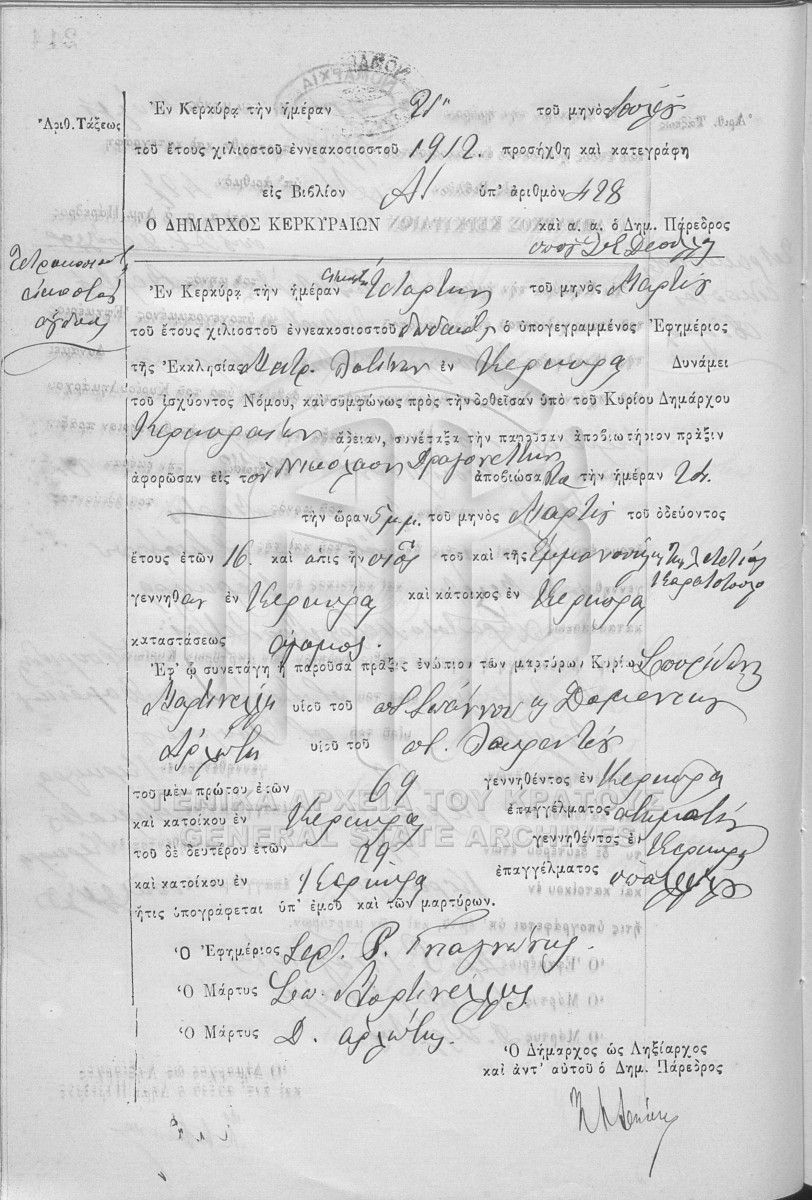 Ἐν Κερκύρᾳ τὴν ἡμέραν 21η τοῦ μηνὸς
Ἀριθ. Τάξεως
τοῦ ἔτους χιλιοστοῦ ἐννεακοσιοστοῦ 1912. προσήχθη καὶ κατεγράφη
εἰς Βιβλίον Α1 ὑπ' ἀριθμὸν 428
Ο ΔΗΜΑΡΧΟΣ ΚΕΡΚΥΡΑΙΩΝ καὶ α. α. ὁ Δημ. Πάρεδρος
Τετρακοσιοστὴ
εἰκοστὴ
ὀγδόη
Ἐν Κερκύρᾳ τὴν ἡμέραν εἰκοστὴν τετάρτην τοῦ μηνὸς Μαρτίου
τοῦ ἔτους χιλιοστοῦ ἐννεακοσιοστοῦ δωδεκάτου ὁ ὑπογεγραμμένος Ἐφημέριος
τῆς Ἐκκλησίας Μητρ. Λατίνων ἐν Κερκύρᾳ Δυνάμει
τοῦ ἰσχύοντος Νόμου, καὶ συμφώνως πρὸς τὴν δοθεῖσαν ὑπὸ τοῦ Κυρίου Δημάρχου
Κερκυραίων ἄδειαν, συνέταξα τὴν παροῦσαν ἀποβιωτήριον πρᾶξιν
ἀφορῶσαν εἰς τὸν Νικόλαον Δραγονέττην ἀποβιώσαντα τὴν ἡμέραν 24.
τὴν ὥραν 5 μμ. τοῦ μηνὸς Μαρτίου τοῦ ὁδεύοντος
ἔτους ἐτῶν 16. καὶ ὅστις ἦν υἱὸς τοῦ καὶ τῆς Ἐμμανουήλ
γεννηθεὶς ἐν Κερκύρᾳ καὶ κάτοικος ἐν Κερκύρᾳ
καταστάσεως ἄγαμος.
Ἐφ' ᾧ συνετάγη ἡ παροῦσα πρᾶξις ἐνώπιον τῶν μαρτύρων Κυρίων Σπυρίδων
Μαρτινέλλη υἱοῦ τοῦ ποτ. Ἰωάννου
υἱοῦ τοῦ ποτ. Λαυρεντίου
τοῦ μὲν πρώτου ἐτῶν 69 γεννηθέντος ἐν Κερκύρᾳ
καὶ κατοίκου ἐν Κερκύρᾳ ἐπαγγέλματος
τοῦ δὲ δευτέρου ἐτῶν 29 γεννηθέντος ἐν Κερκύρᾳ
καὶ κατοίκου ἐν Κερκύρᾳ ἐπαγγέλματος
ἥτις ὑπογράφεται ὑπ' ἐμοῦ καὶ τῶν μαρτύρων.
Ὁ Ἐφημέριος
Ὁ Μάρτυς Σπ. Μαρτινέλλης
Ὁ Μάρτυς Δ. Ἀρλώτης
Ὁ Δήμαρχος ὡς Ληξίαρχος
καὶ ἀντ' αὐτοῦ ὁ Δημ. Πάρεδρος
ΓΕΝΙΚΑ ΑΡΧΕΙΑ ΤΟΥ ΚΡΑΤΟΥΣ
GENERAL STATE ARCHIVES